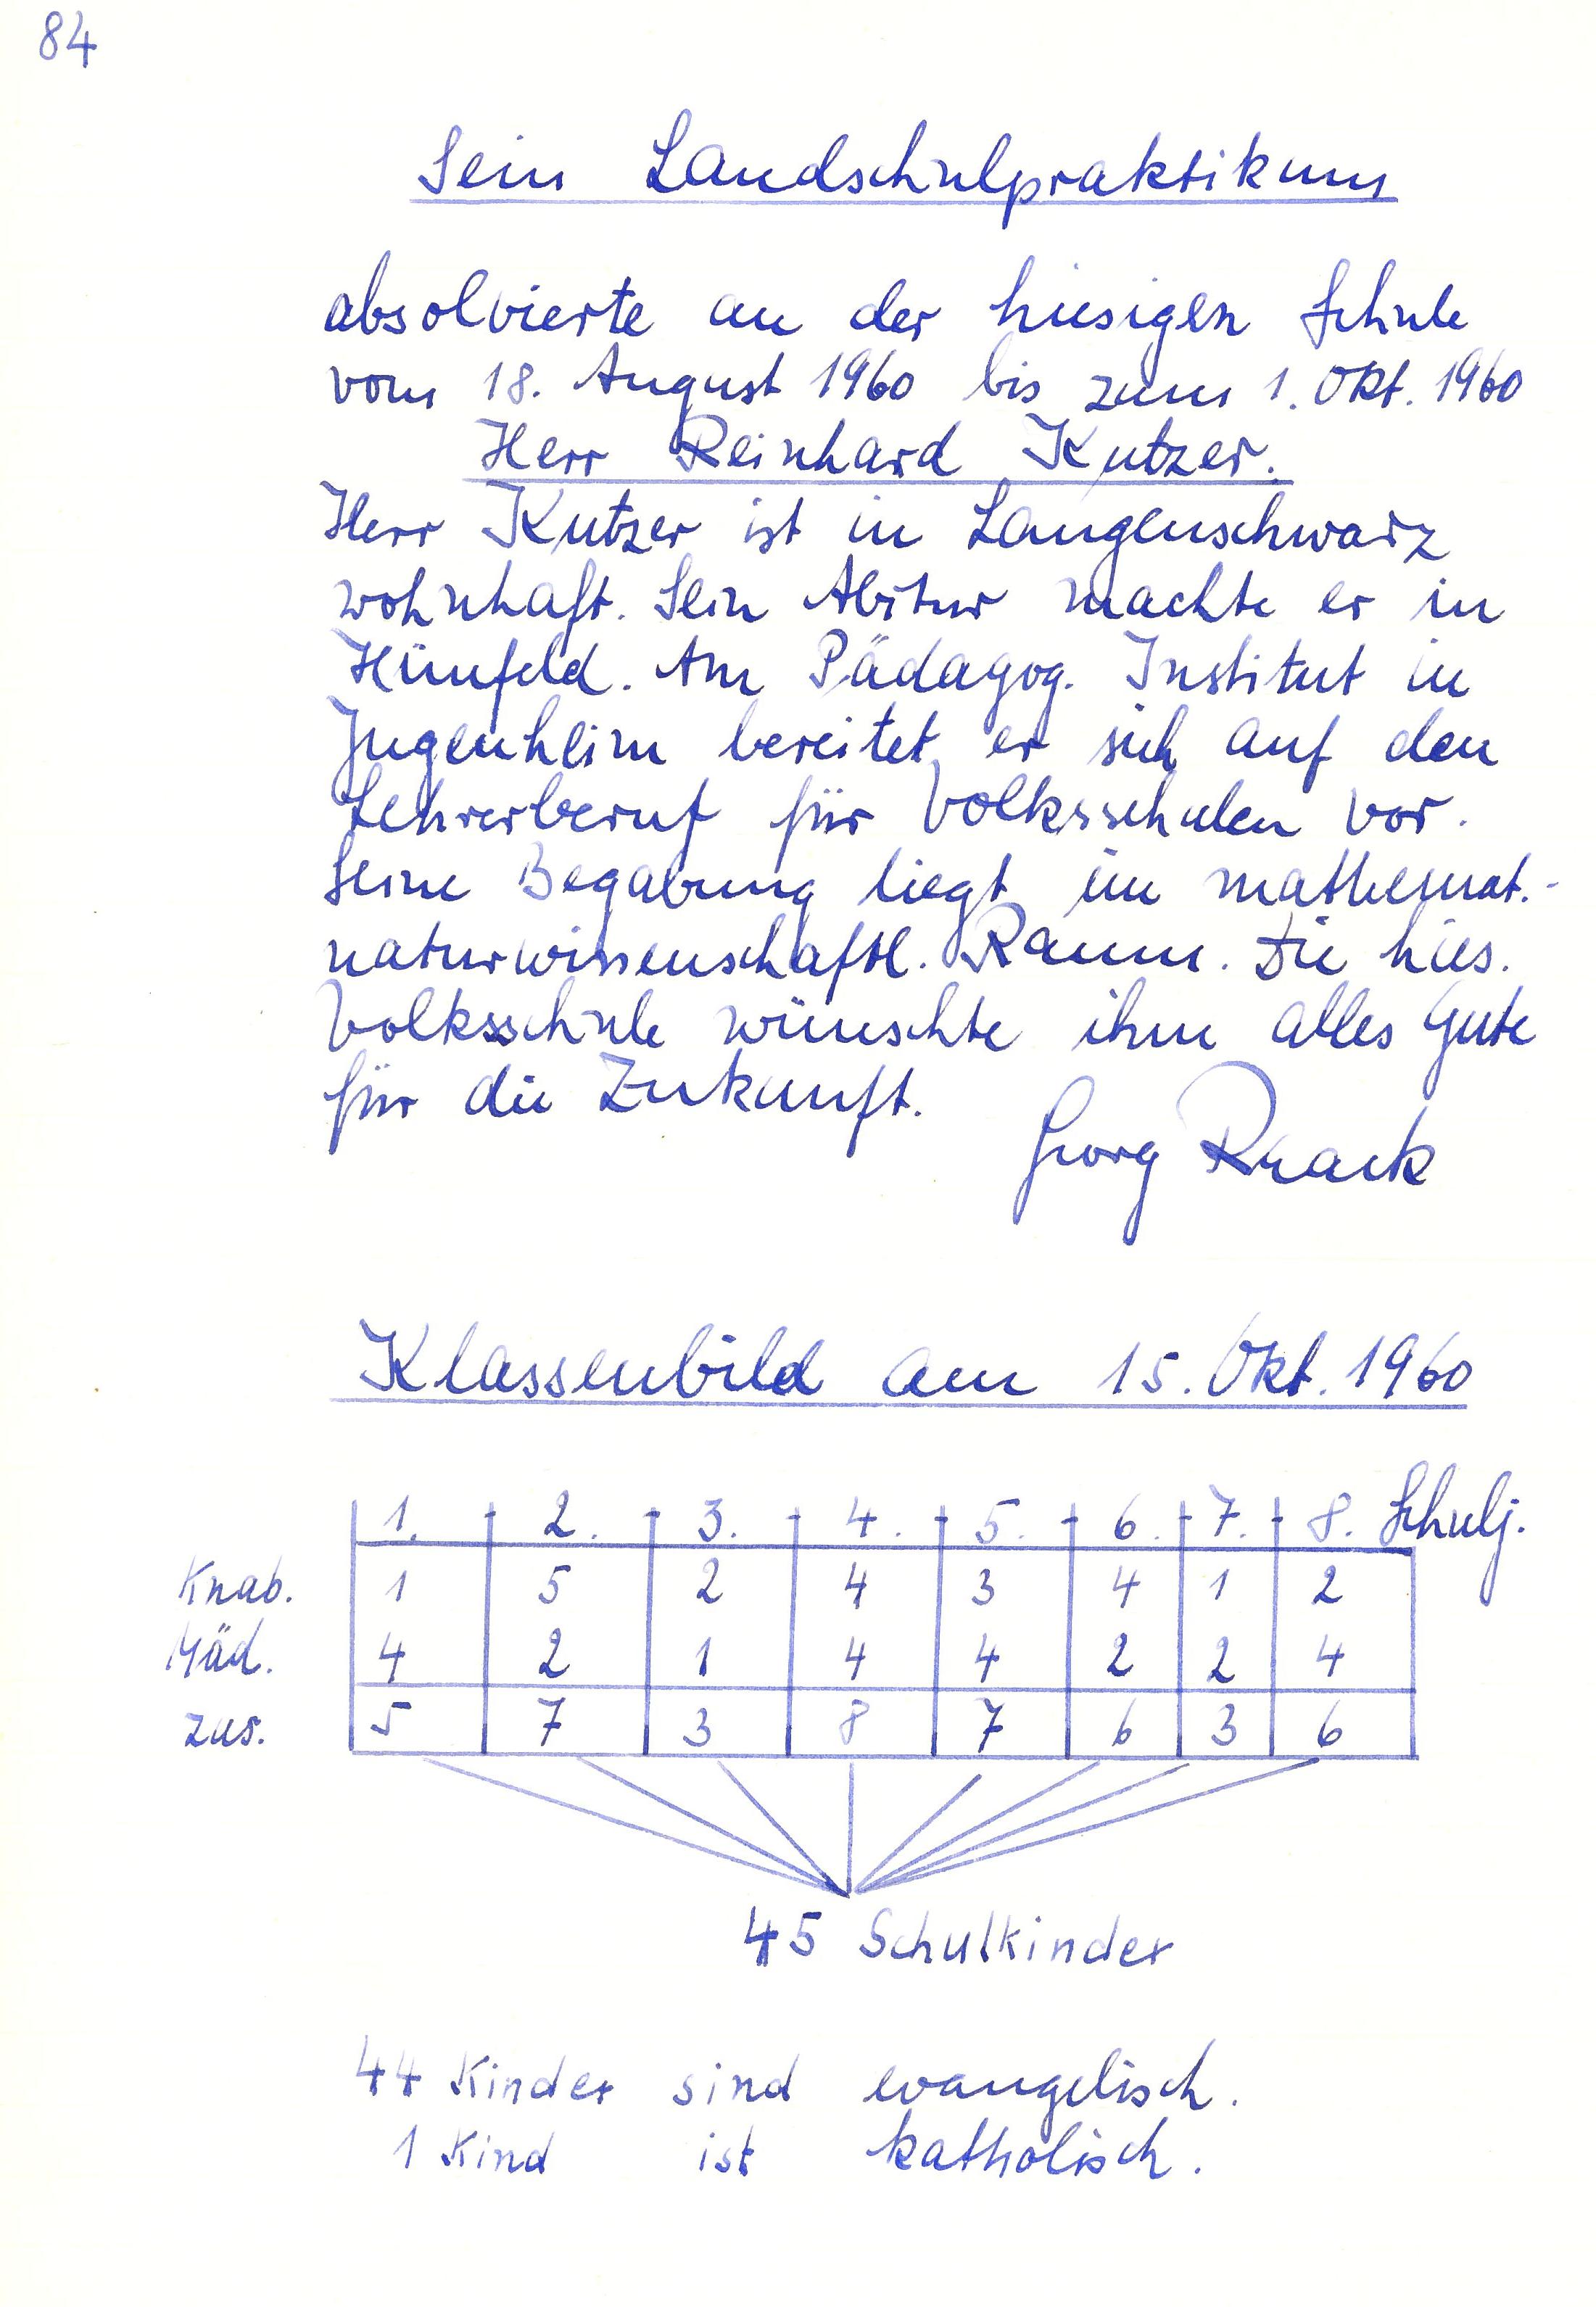 84
Sein Landschulpraktikum
absolvierte an der hiesigen Schule
vom 18. August 1960 bis zum 1. Okt. 1960
Herr Reinhard Kutzer.
Herr Kutzer ist in Langenschwarz
wohnhaft. Sein Abitur machte er in
Hünfeld. Am Pädagog. Institut in
Jugenheim bereitet er sich auf den
Lehrerberuf für Volksschulen vor.
Seine Begabung liegt im mathemat.-
naturwissenschaftl. Raum. Die hies.
Volksschule wünschte ihm alles Gute
für die Zukunft.
Georg
Klassenbild am 15. Okt. 1960
1. - 2. - 3. - 4. - 5. - 6. - 7. - 8. Schulj.
Knab. 1 5 2 4 3 4 1 2
Mäd. 4 2 1 4 4 2 2 4
zus. 5 7 3 8 7 6 3 6
45 Schulkinder
44 Kinder sind evangelisch.
1 Kind ist katholisch.